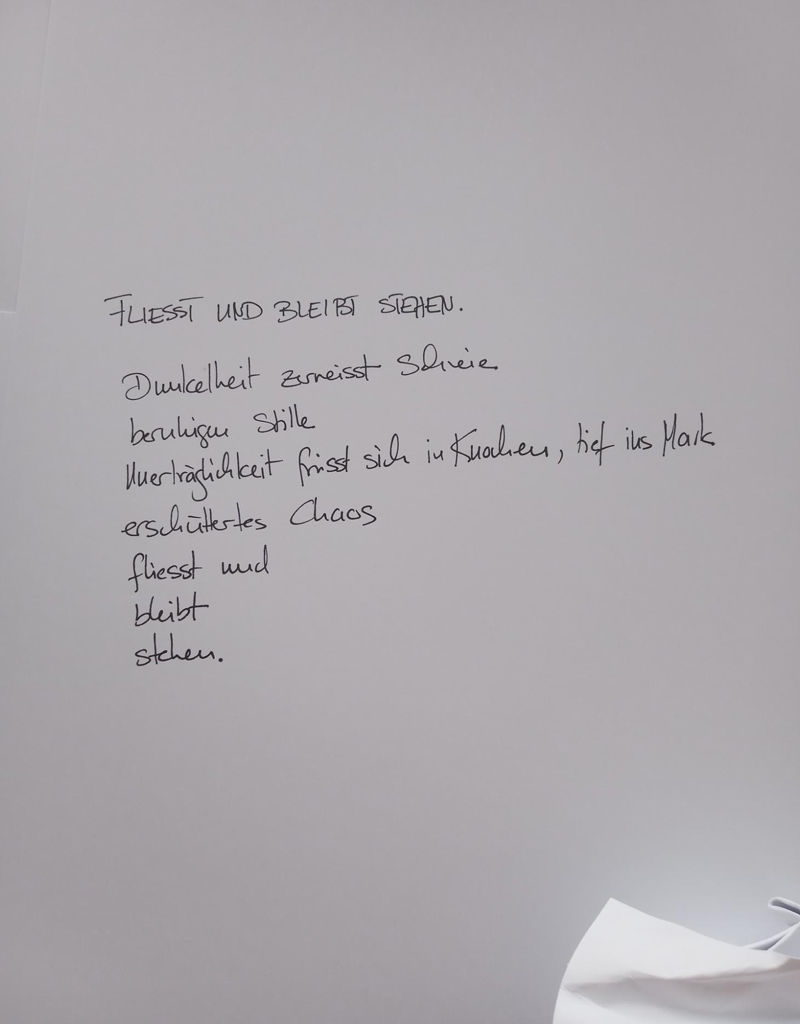 FLIESST UND BLEIBT STEHEN.
Dunkelheit zerreisst Schreie
beruhigen Stille
Unerträglichkeit frisst sich in Knochen, tief ins Mark
erschüttertes Chaos
fliesst und
bleibt
stehen.